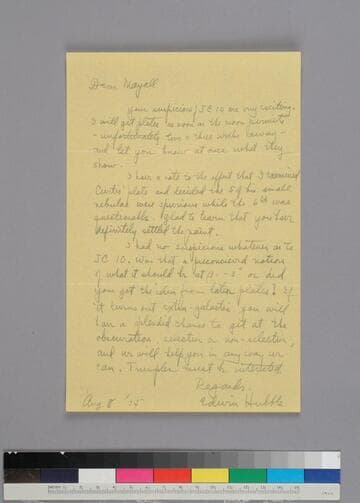 Dear Mayall
Your suspicions of IC 10 are very exciting.
I will get plates as soon as the moon permits
- unfortunately two or three weeks away -
and let you know at once what they
show.
I have a note to the effect that I examined
Curtis' plate and decided the 5 of his small
nebulae were spurious while the 6th was
questionable. Glad to learn that you have
definitely settled the point.
I had no suspicions whatever as to
IC 10. Was that a preconceived notion
of what it should be at or did
you get the idea from later plates? If
it turns out extra-galactic you will
have a splendid chance to get at the
obscuration, selective or non-selective,
and we will help you in any way we
can. Trumpler must be interested.
Regards.
Aug 8 '35 Edwin Hubble